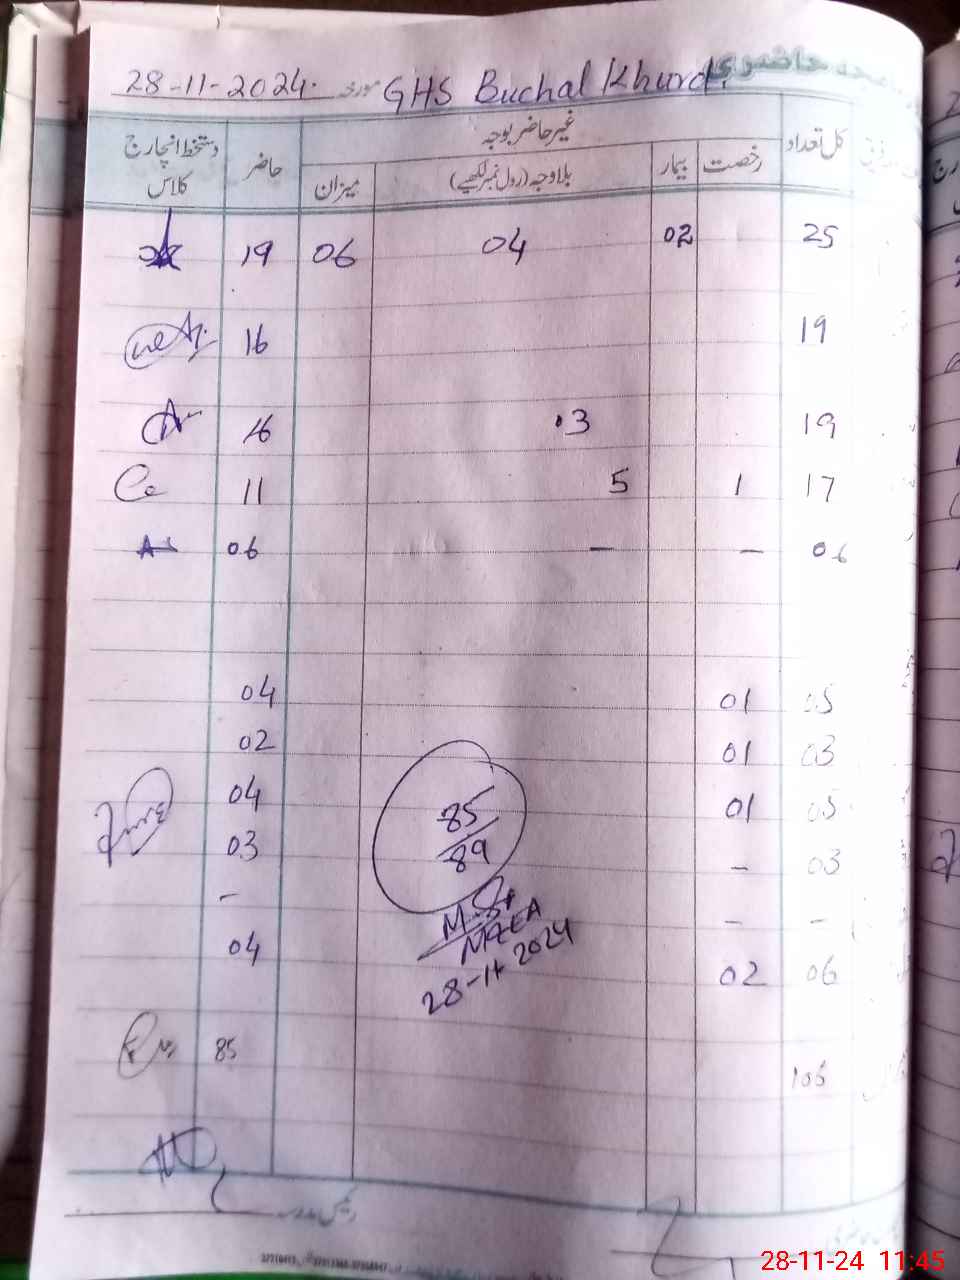 حاضری
28-11-2024. مورخہ GHS Buchal Khurd.
کل تعداد غیر حاضر بوجہ حاضر دستخط انچارج کلاس
رخصت بیمار بلاوجہ (رول نمبر لکھیے) میزان
25 02 04 06 19
19 16
19 03 16
17 1 5 11
06 — — 06
05 01 04
03 01 02
05 01 04
03 — 03
— — —
06 02 04
85
89
28-11-2024
106 85
رئیس مدرسہ
28-11-24 11:45